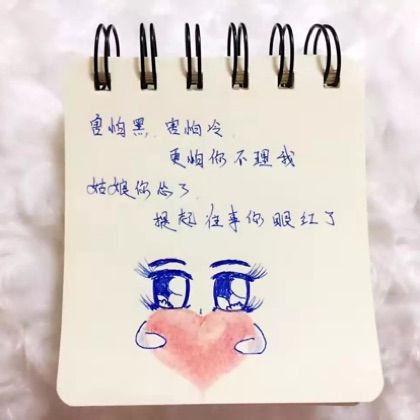 害怕黑, 害怕冷,
更怕你不理我
姑娘你怂了
提起往事你眼红了